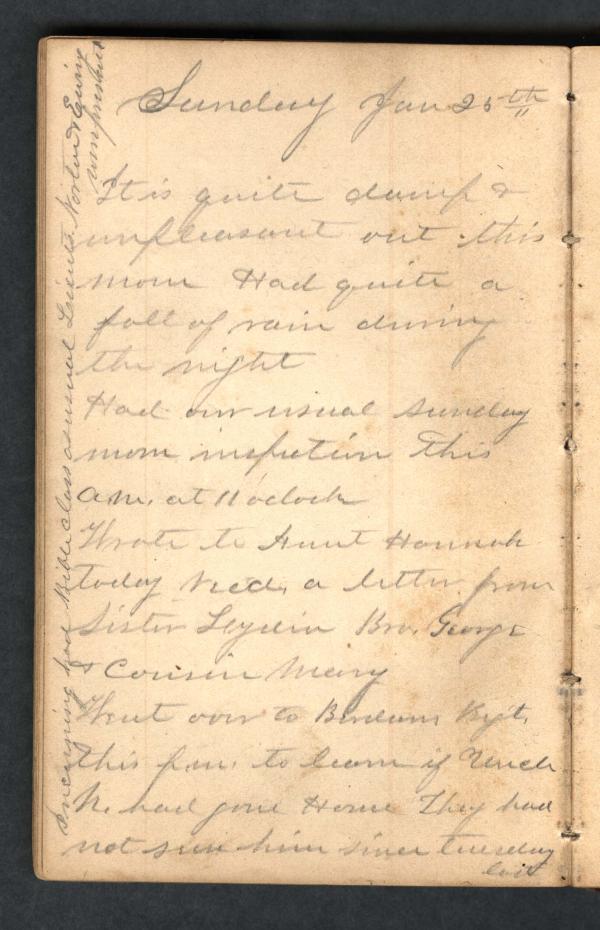 Sunday Jan 25th
It is quite damp &
unpleasant out this
morn Had quite a
fall of rain during
the night
Had our usual Sunday
morn inspection This
a.m. at 11 oclock
Wrote to Aunt Hannah
today Recd. a letter from
Sister Lydia Bro. George
& Cousin Mary
Went over to Berdans Regt.
this p.m. to learn if Uncle
N. had gone Home They had
not seen him since tuesday
last
In evening had Bible class as usual Lieuts. Norton & Ewing
were present